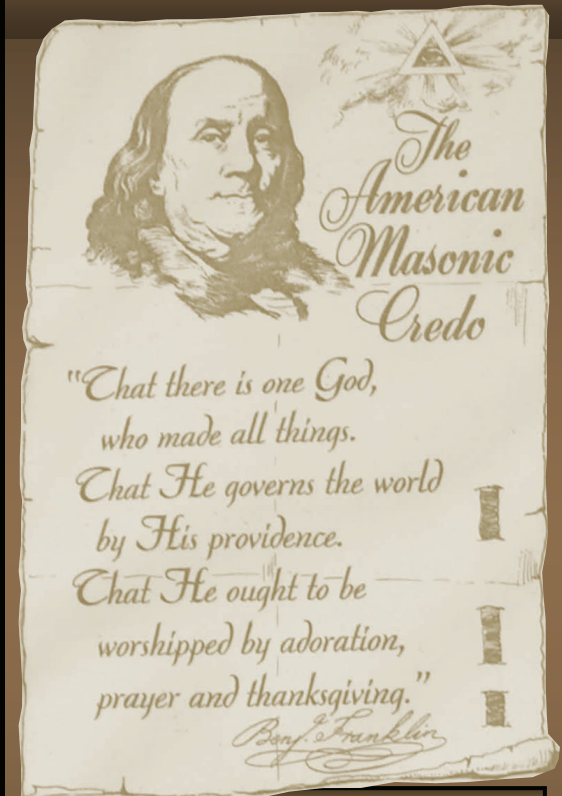 The
American
Masonic
Credo
"That there is one God,
who made all things.
That He governs the world
by His providence.
That He ought to be
worshipped by adoration,
prayer and thanksgiving."
Benj. Franklin